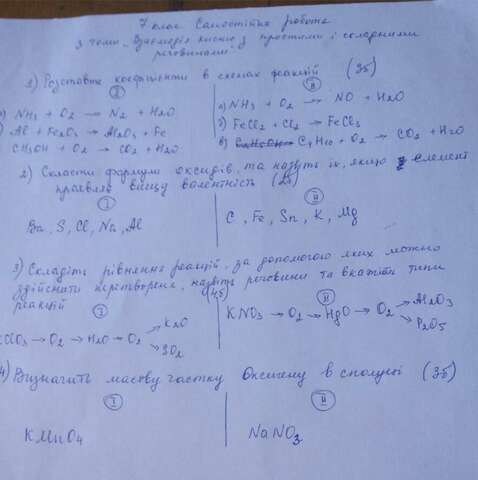 7 клас Самостійна робота
з теми „Взаємодія кисню з простими і складними
речовинами"
1) Розставте коефіцієнти в схемах реакцій (3б)
I II
а) NH3 + O2 → N2 + H2O а) NH3 + O2 → NO + H2O
) Al + Fe2O3 → Al2O3 + Fe б) FeCl2 + Cl2 → FeCl3
CH3OH + O2 → CO2 + H2O в) C4H10 + O2 → CO2 + H2O
2) Скласти формули оксидів, та назвіть їх, якщо елемент
проявляє вищу валентність (2б)
I II
Ba, S, Cl, Na, Al C, Fe, Sn, K, Mg
3) Складіть рівняння реакцій, за допомогою яких можно
здійснити перетворення, назвіть речовини та вкажіть типи
реакцій (4б)
I II
KClO3 → O2 → H2O → O2 → K2O → SO2
KNO3 → O2 → HgO → O2 → Al2O3 → P2O5
4) Визначить масову частку Оксигену в сполуці (3б)
I II
KMnO4 NaNO3